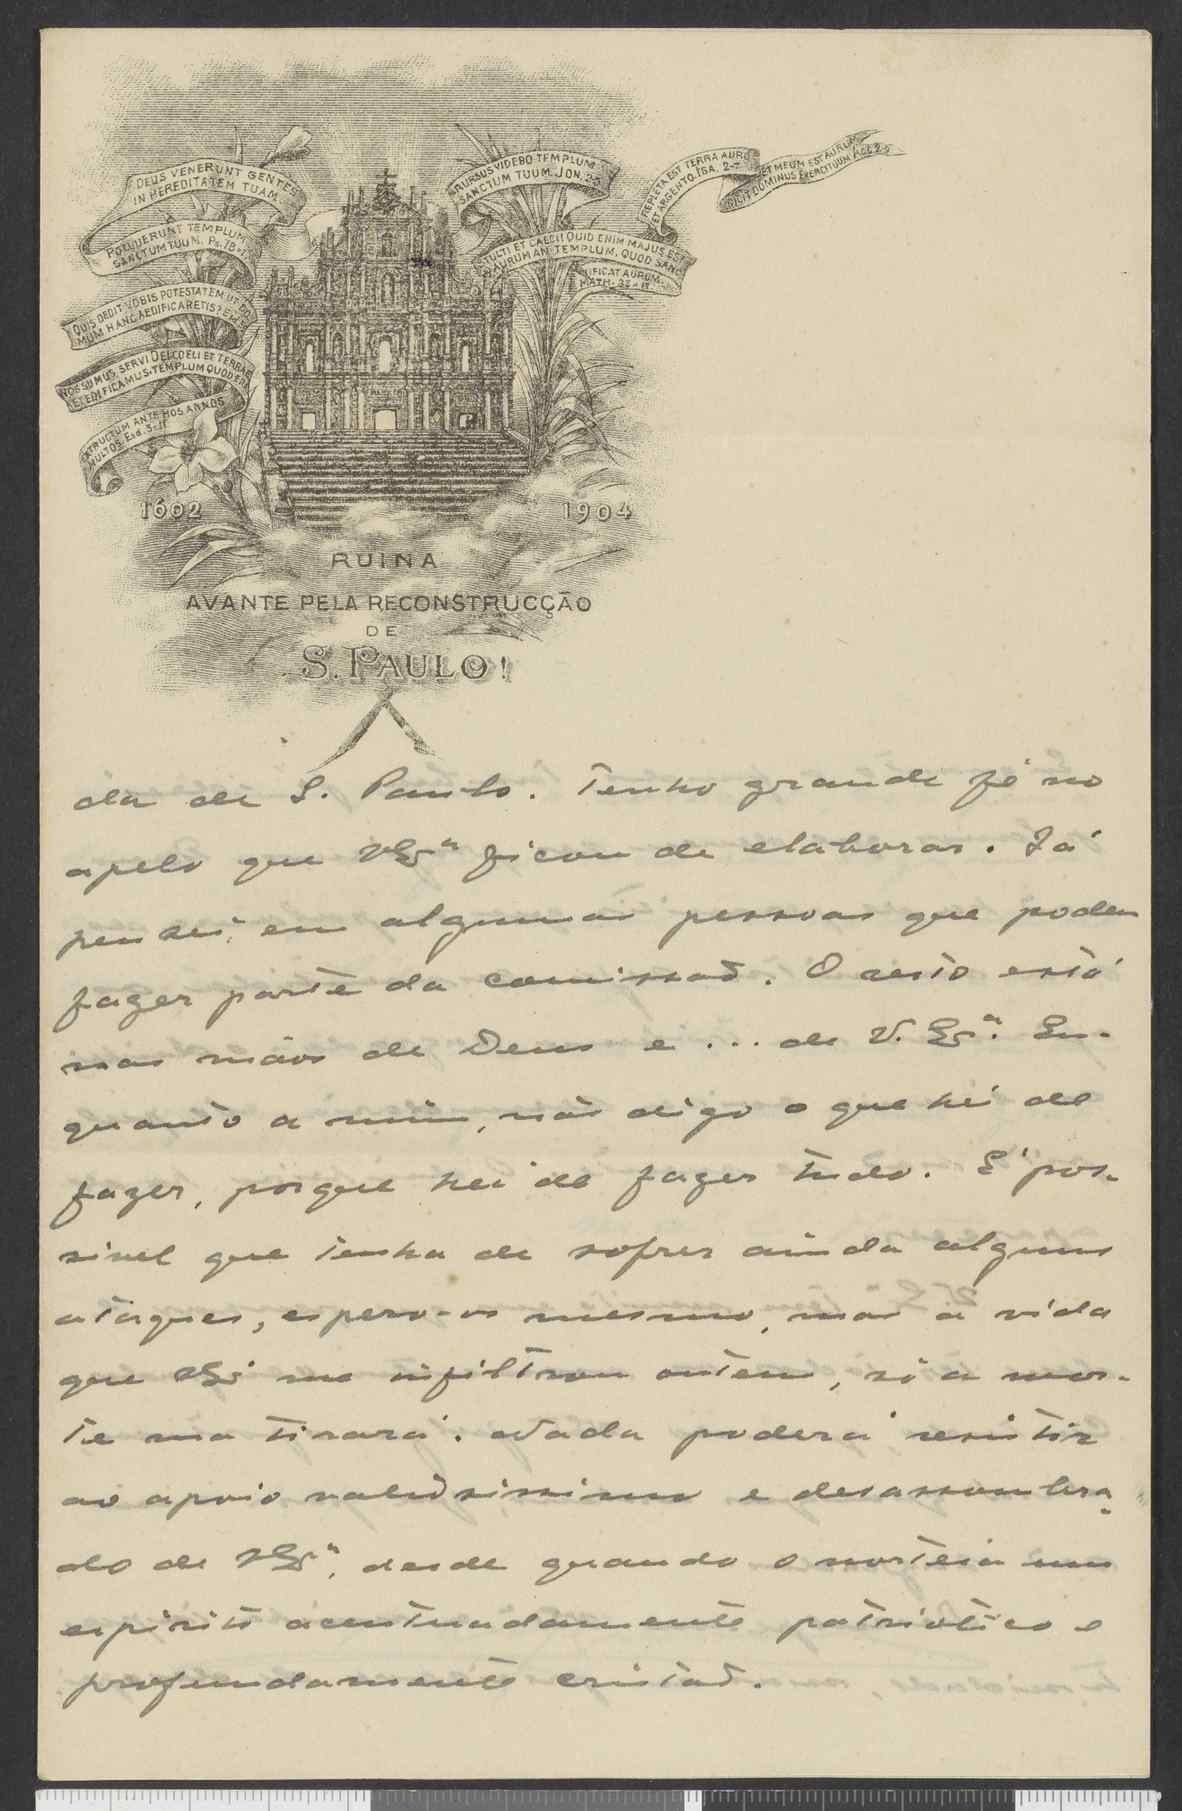 DEUS VENERUNT GENTES
IN HEREDITATEM TUAM
POLUERUNT TEMPLUM
SANCTUM TUUM. Ps. 78-1
QUIS DEDIT VOBIS POTESTATEM UT DO
MUM HANC AEDIFICARETIS?
NOS SUMUS SERVI DEI COELI ET TERRAE
ET EDIFICAMUS TEMPLUM QUOD ERAT
EXTRUCTUM ANTE HOS ANNOS
MULTOS. Esd. 5-11
RURSUS VIDEBO TEMPLUM
SANCTUM TUUM. JON. 2-5
STULTI ET CAECI! QUID ENIM MAJUS EST
AURUM AN TEMPLUM, QUOD SANC
TIFICAT AURUM.
MATH. 23-17
REPLETA EST TERRA AURO
ET ARGENTO. ISA. 2-7
ET MEUM EST AURUM
DICIT DOMINUS EXERCITUUM
1602
1904
RUINA
AVANTE PELA RECONSTRUCÇÃO
DE
S. PAULO!
da de S. Paulo. Tenho grande fé no
apelo que VExª ficou de elaborar. Já
pensei em algumas pessoas que podem
fazer parte da comissão. O resto está
nas mãos de Deus e ... de V. Exª. En-
quanto a mim, não digo o que hei de
fazer, porque hei de fazer tudo. É pos-
sivel que tenha de sofrer ainda alguns
ataques, espero-os mesmo, mas a vida
que VEx me infiltrou ontem, só a mor-
te ma tirará. Nada poderá resistir
ao apoio validissimo e desassombra-
do de VExª, desde quando o norteia um
espirito acentuadamente patriotico e
profundamente cristão.